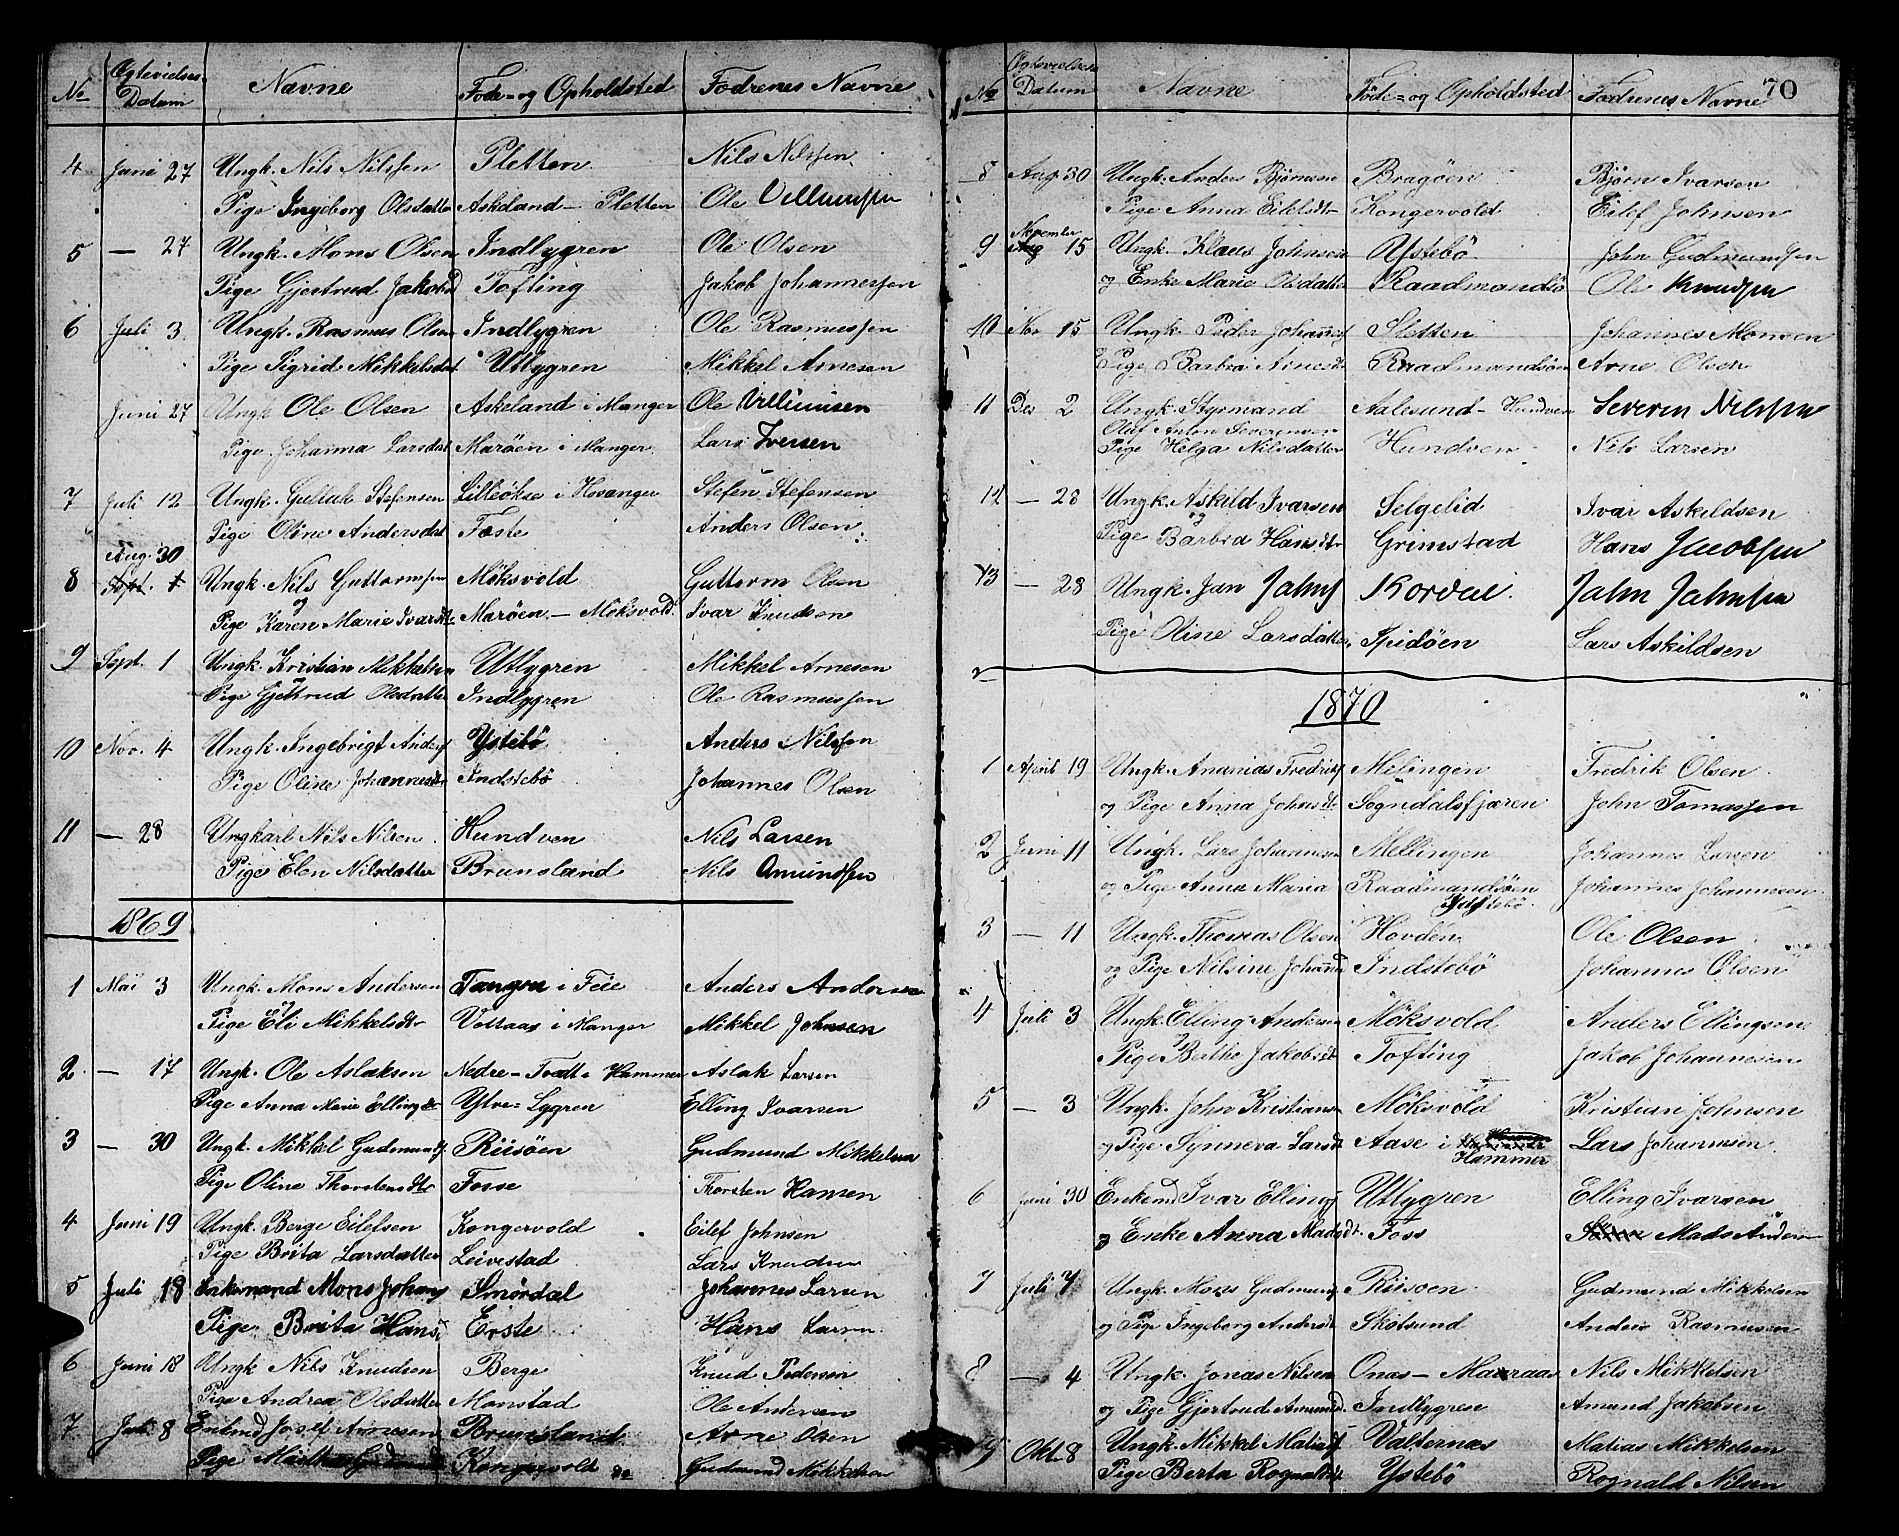 No Egtevielses Datum Navne Føde- og Opholdsted Fædrenes Navne
4 Juni 27 Ungk. Nils Nilssen Pletten Nils Nilssen
Pige Ingeborg Olsdatter Askeland - Pletten Ole Villumsen
5 — 27 Ungk. Mons Olsen Indlygren Ole Olsen
Pige Gjertrud Jakobsd Tofting Jakob Johannessen
6 Juli 3 Ungk. Rasmus Olsen Indlygren Ole Rasmussen
Pige Sigrid Mikkelsdat Utlygren Mikkel Arnesen
Juni 27 Ungk Ole Olsen Askeland i Manger Ole Villumsen
Pige Johanna Larsdat Marøen i Manger Lars Iversen
7 Juli 12 Ungk. Gullak Stefensen Lilleökse i Hosanger Stefen Stefensen
Pige Oline Andersdat Fæste Anders Olsen
Aug. 30
8 Sept. 1 Ungk. Nils Guttormsen Möksvold Guttorm Olsen
og
Pige Karen Marie Ivarsdt. Marøen - Möksvold Ivar Knudsen
9 Sept. 1 Ungk. Kristian Mikkelsen Utlygren Mikkel Arnesen
og
Pige Gjertrud Olsdatter Indlygren Ole Rasmussen
10 Nov. 4 Ungk. Ingebrigt Anders Ystebö Anders Nilssen
Pige Oline Johannesdtr Indstebö Johannes Olsen
11 — 28 Ungkarl Nils Nilsen Hundven Nils Larsen
Pige Elen Nilsdatter Brunsland Nils Amundsen
1869
1 Mai 3 Ungk. Mons Andersen Tangen i Feie Anders Andersen
og
Pige Eli Mikkelsdtr Vollaas i Manger Mikkel Johnsen
2 — 17 Ungk. Ole Aslaksen Nedre-Tvedt i Hammer Aslak Larsen
Pige Anna Marie Ellingsdtr Ytre-Lygren Elling Ivarsen
3 — 30 Ungk. Mikkel Gudmunds Riisöen Gudmund Mikkelsen
Pige Oline Thorstensdtr Fosse Thorsten Hansen
4 Juni 19 Ungk. Berge Eilefsen Kongervold Eilef Johnsen
Pige Brita Larsdatter Leivestad Lars Knudsen
5 Juli 18 Enkemand Mons Johans Smørdal Johannes Larsen
Pige Brita Hans Erste Hans Larsen
6 Juni 18 Ungk Nils Knudsen Berge Knud Pedersen
Pige Andrea Olsdatter Monstad Ole Andersen
7 Juli 8 Enkmd Josef Arnesen Brunsland Arne Olsen
Pige Kongervold Gudmund Mikkelsen
70
No Egtevielses Datum Navne Føde- og Opholdsted Fædrenes Navne
8 Aug 30 Ungk. Anders Bjørnsen Bragöen Bjørn Ivarsen
Pige Anna Eilefsdtr Kongervold Eilef Johnsen
November
9 Aug 15 Ungk. Klaus Johnsen Ystebö John Gudmundsen
og Enke Marie Olsdatter Raadmandsö Ole Knudsen
10 Nov 15 Ungk. Peder Johannes Sletten Johannes Monsen
Pige Barbra Arnesdt Raadmandsöen Arne Olsen
11 Des 2 Ungk. Styrmand Aalesund - Hundven Severin Nilssen
Olaf Anton Severinsen
Pige Helga Nilsdatter Hundven Nils Larsen
12 — 28 Ungk. Askild Ivarsen Selgelid Ivar Askildsen
og
Pige Barbra Hansdtr Grimstad Hans Jacobsen
13 — 28 Ungk. Jan Jahns Kordal Jahn Jahnsen
Pige Oline Larsdatter Spidöen Lars Askildsen
1870
1 April 19 Ungk. Ananias Fredriks Mélingen Fredrik Olsen
og Pige Anna Johnsdtr Sogndalsfjæren John Tomassen
2 Juni 11 Ungk. Lars Johannesen Mellingen Johannes Larsen
og Pige Anna Maria Raadmandsöen Johannes Johannesen
Indstebö
3 — 11 Ungk. Thomas Olsen Hovden Ole Olsen
og Pige Nilsine Johannsd Indstebö Johannes Olsen
4 Juli 3 Ungk. Elling Andersen Möksvold Anders Ellingsen
og
Pige Berthe Jakobsdt Tofting Jakob Johannesen
5 — 3 Ungk. John Kristians Möksvold Kristian Johnsen
og Pige Synneva Larsdt Aase i Hammer Lars Johannesen
6 Juni 30 Enkemd Ivar Ellings Utlygren Elling Ivarsen
og Enke Anna Madsdt. Foss Mads Anders
7 Juli 7 Ungk. Mons Gudmunds Riisöen Gudmund Mikkelsen
og Pige Ingeborg Andersdt Skotsund Anders Rasmusen
8 — 4 Ungk. Jonas Nilsen Onas - Maraas Nils Mikkelsen
og Pige Gjertrud Amundsd. Indlygren Amund Jakobsen
9 Okt. 8 Ungk. Mikkel Matias Valternæs Matias Mikkelsen
Pige Berta Rognaldsdt Ystebö Rognald Nilsen